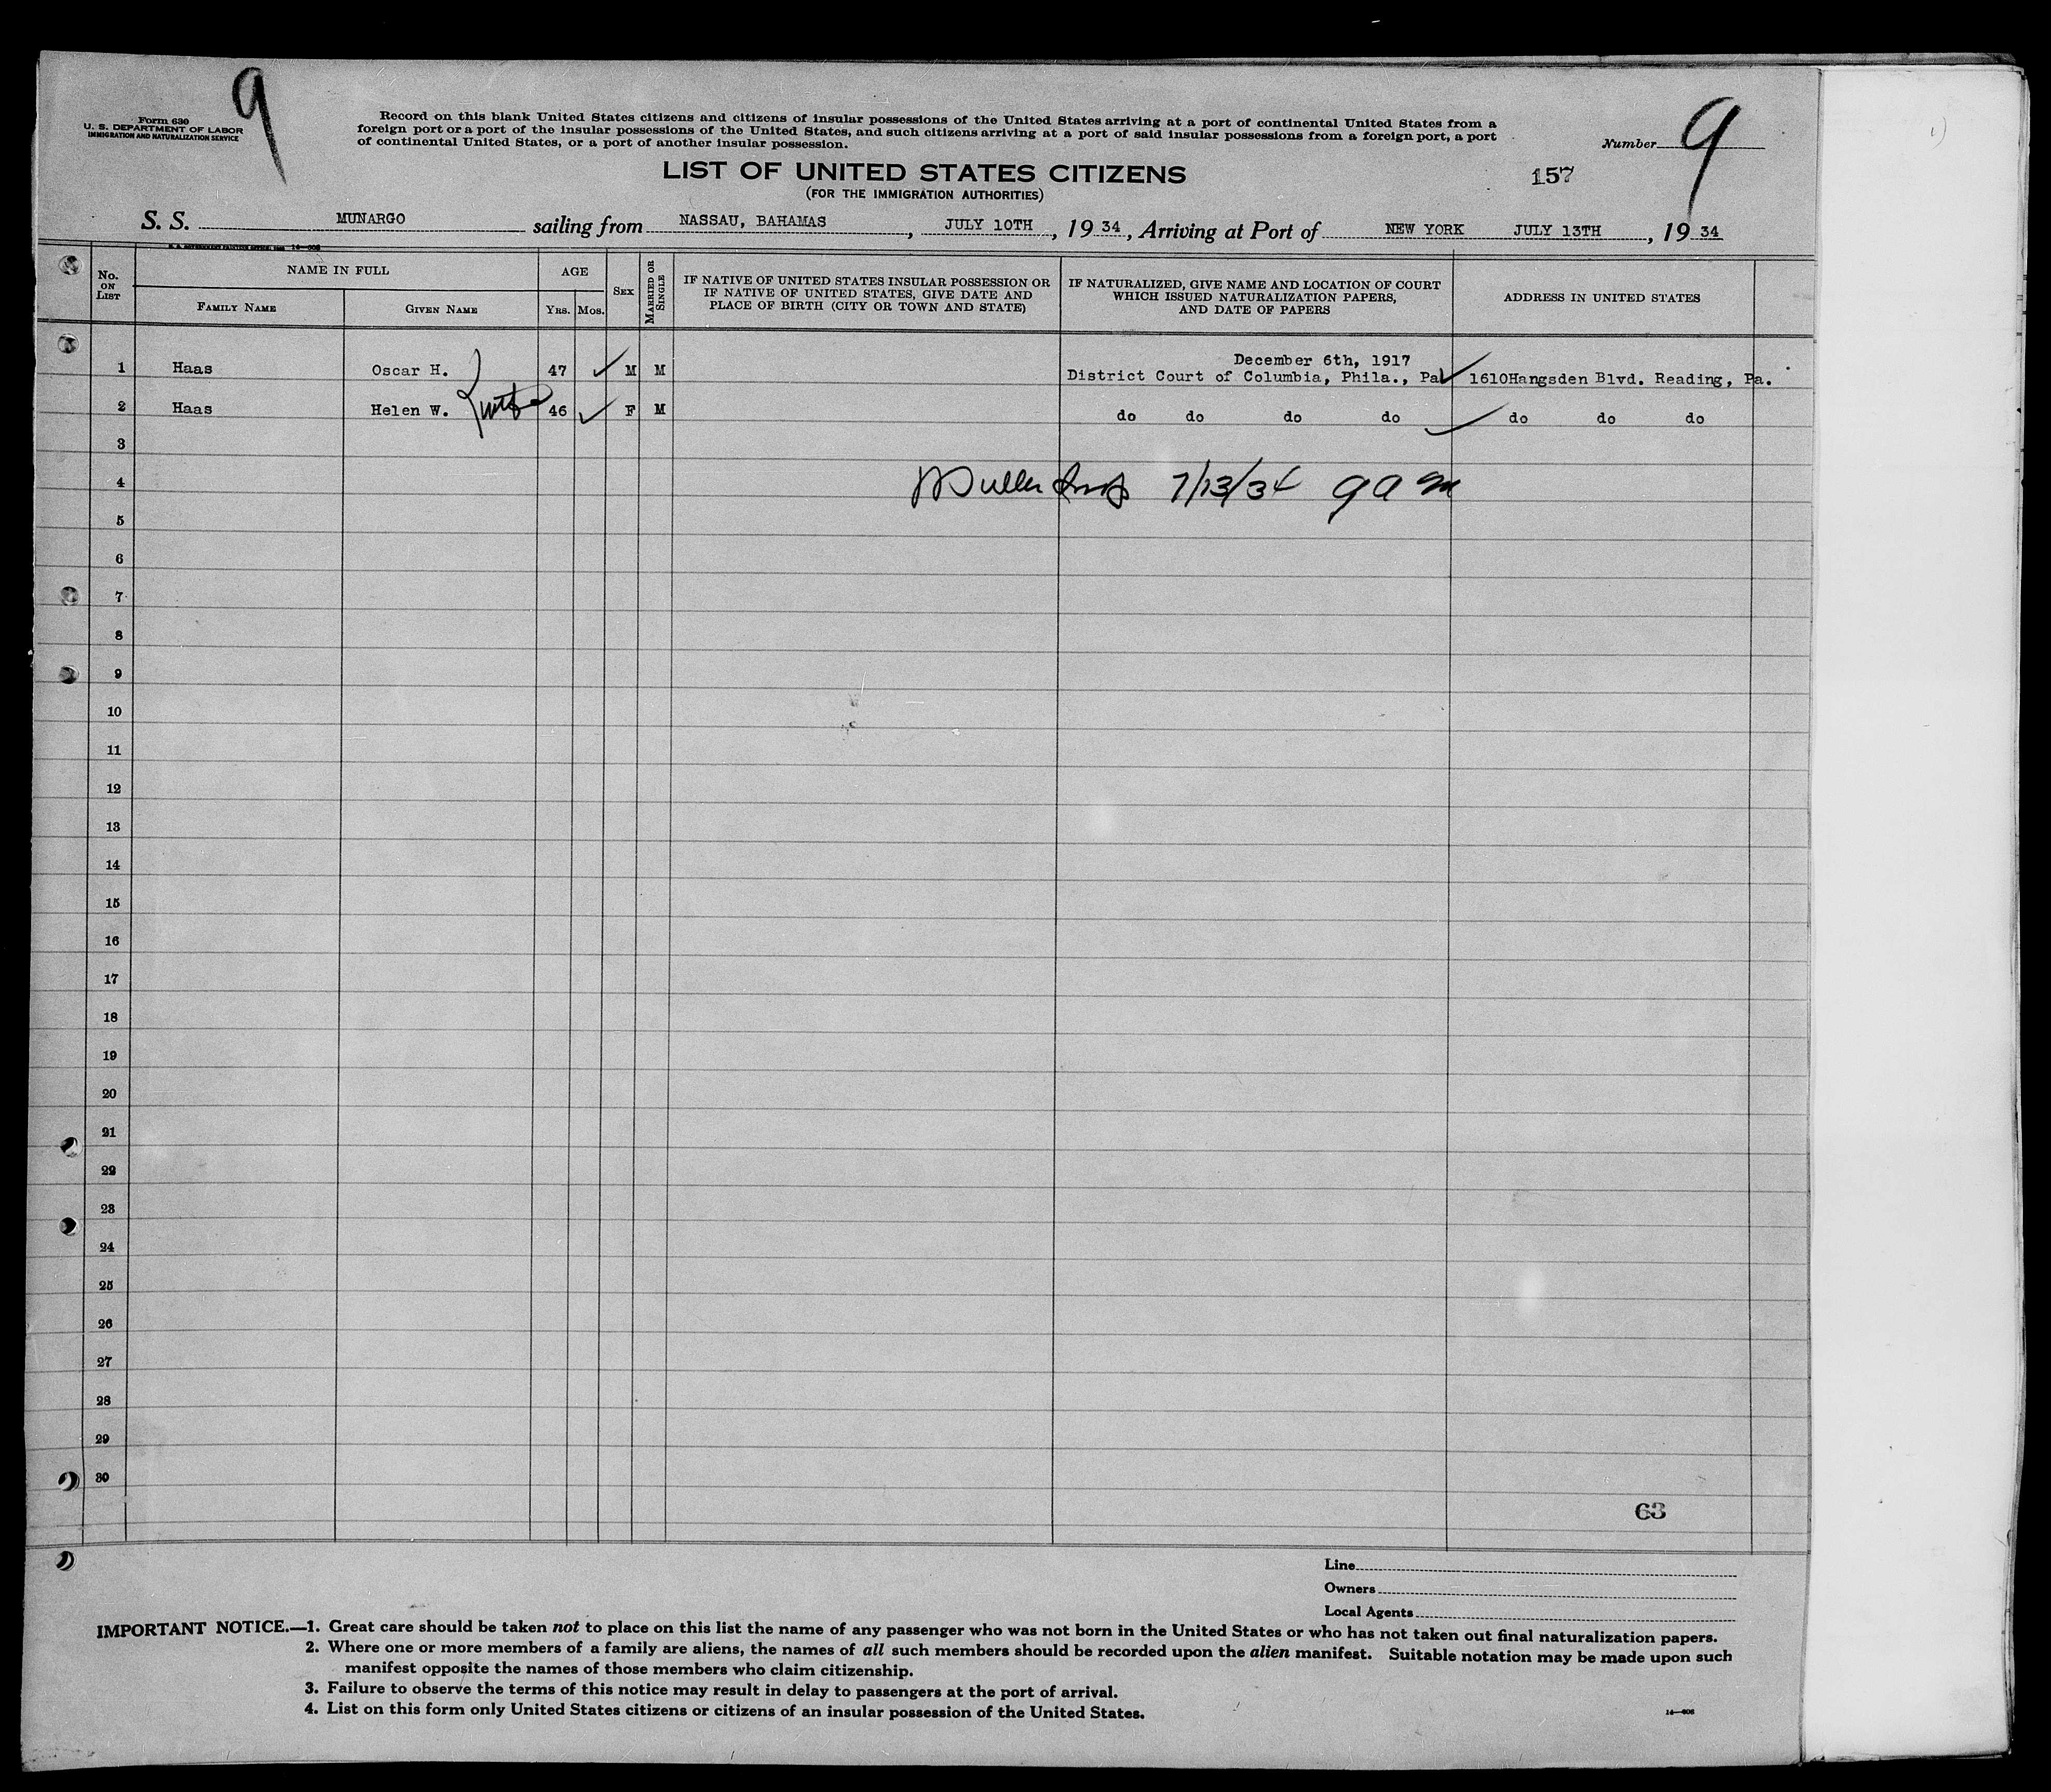 9
Form 630
U. S. DEPARTMENT OF LABOR
IMMIGRATION AND NATURALIZATION SERVICE
Record on this blank United States citizens and citizens of insular possessions of the United States arriving at a port of continental United States from a
foreign port or a port of the insular possessions of the United States, and such citizens arriving at a port of said insular possessions from a foreign port, a port
of continental United States, or a port of another insular possession.
Number 9
LIST OF UNITED STATES CITIZENS
157
(FOR THE IMMIGRATION AUTHORITIES)
S. S. MUNARGO sailing from NASSAU, BAHAMAS, JULY 10TH, 19 34, Arriving at Port of NEW YORK JULY 13TH, 19 34
No. ON LIST
NAME IN FULL
FAMILY NAME
GIVEN NAME
AGE
YRS. MOS.
SEX
MARRIED OR SINGLE
IF NATIVE OF UNITED STATES INSULAR POSSESSION OR
IF NATIVE OF UNITED STATES, GIVE DATE AND
PLACE OF BIRTH (CITY OR TOWN AND STATE)
IF NATURALIZED, GIVE NAME AND LOCATION OF COURT
WHICH ISSUED NATURALIZATION PAPERS,
AND DATE OF PAPERS
ADDRESS IN UNITED STATES
December 6th, 1917
1 Haas Oscar H. 47 M M District Court of Columbia, Phila., Pa 1610Hangsden Blvd. Reading, Pa.
2 Haas Helen W. 46 F M do do do do do do do
3
4 7/13/34 9 a m
5
6
7
8
9
10
11
12
13
14
15
16
17
18
19
20
21
22
23
24
25
26
27
28
29
30
63
Line
Owners
Local Agents
IMPORTANT NOTICE.—1. Great care should be taken not to place on this list the name of any passenger who was not born in the United States or who has not taken out final naturalization papers.
2. Where one or more members of a family are aliens, the names of all such members should be recorded upon the alien manifest. Suitable notation may be made upon such
manifest opposite the names of those members who claim citizenship.
3. Failure to observe the terms of this notice may result in delay to passengers at the port of arrival.
4. List on this form only United States citizens or citizens of an insular possession of the United States.
14—606